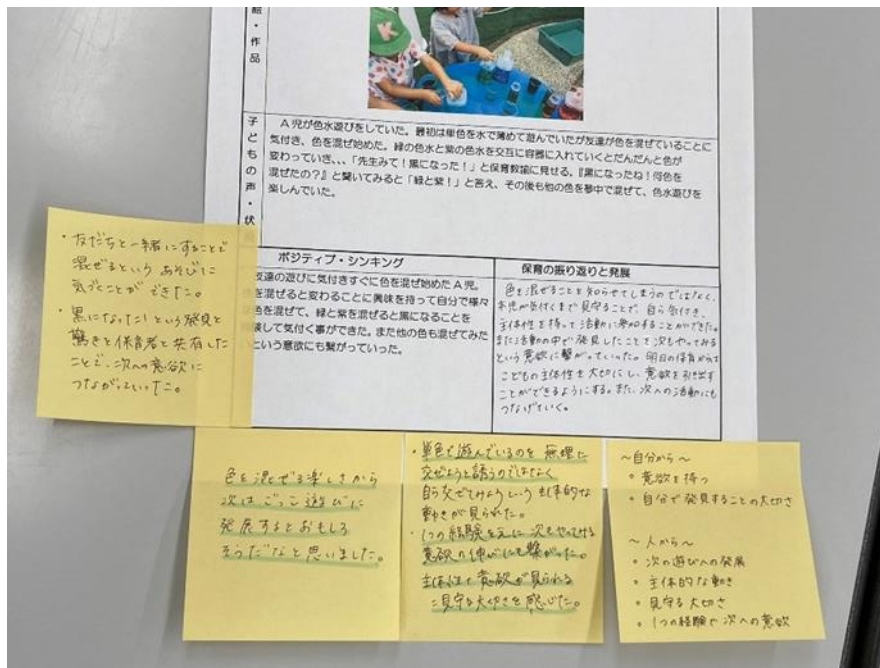 絵・作品
子どもの声・状
A児が色水遊びをしていた。最初は単色を水で薄めて遊んでいたが友達が色を混ぜていることに
気付き、色を混ぜ始めた。緑の色水と紫の色水を交互に容器に入れていくとだんだんと色が
変わっていき、、、「先生みて！黒になった！」と保育教諭に見せる、『黒になったね！何色を
混ぜたの？』と聞いてみると「緑と紫！」と答え、その後も他の色を夢中で混ぜて、色水遊びを
楽しんでいた。
ポジティブ・シンキング
友達の遊びに気付きすぐに色を混ぜ始めたA児。
を混ぜると変わることに興味を持って自分で様々
色を混ぜて、緑と紫を混ぜると黒になることを
して気付く事ができた。また他の色も混ぜてみた
いという意欲にも繋がっていった。
保育の振り返りと発展
色を混ぜることを知らせてしまうのではなく、
本児が気付くまで見守ることで、自ら気付き、
主体性を持って活動に参加することができた。
また活動の中で発見したことを次もやってみる
という意欲に繋がっていった。明日の保育からは
こどもの主体性を大切にし、意欲を引き出す
ことができるようにする。また、次への活動にも
つなげていく。
・友だちと一緒にすることで
混ぜるという あそびに
気づくことが できた。
・黒になった！という発見と
驚きを保育者と共有した
ことで、次への意欲に
つながっていった。
色を混ぜる楽しさから
次はごっこ遊びに
発展するとおもしろ
そうだなと思いました。
・単色で遊んでいるのを 無理に
交ぜようと誘うのではなく
自ら交ぜてみようという 主体的な
動きが見られた。
・1つの経験を元に 次もやってみる
意欲の伸びにも繋がった。
主体性や意欲が見られる
見守る大切さを感じた。
～自分から～
・意欲を持つ
・自分で発見することの大切さ
～人から～
・次の遊びへの発展
・主体的な動き
・見守る大切さ
・1つの経験や次への意欲